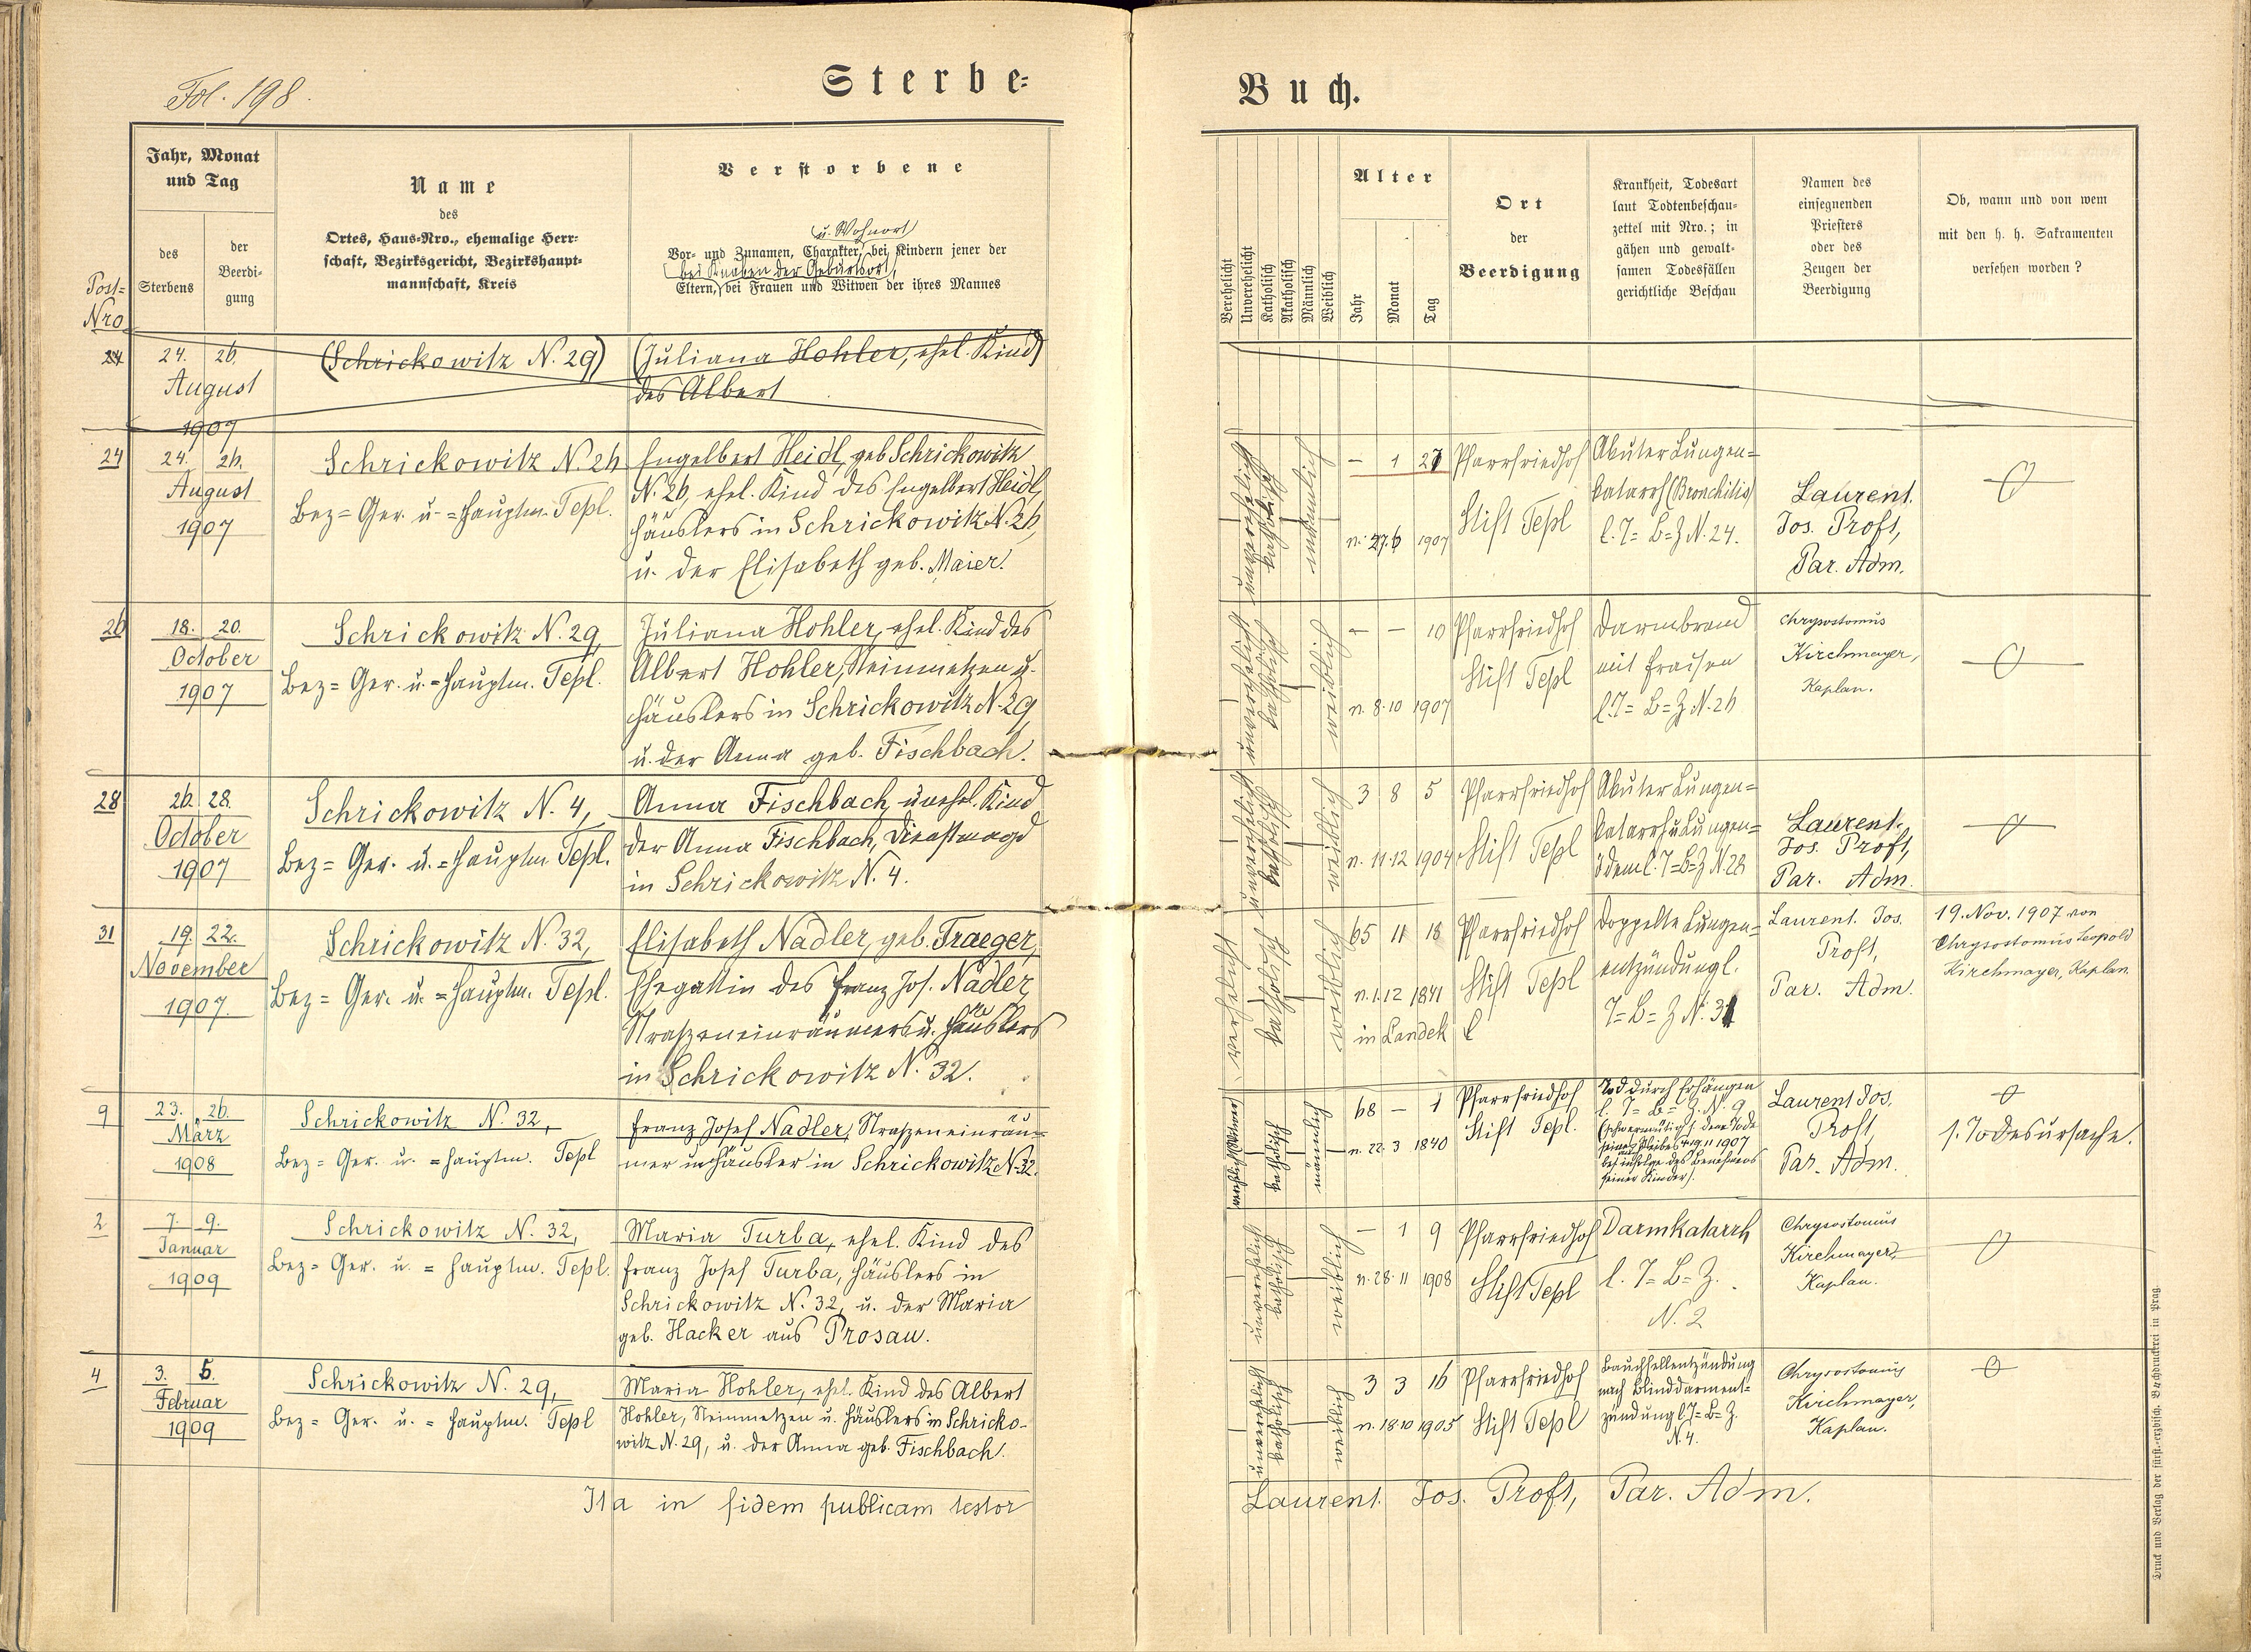 Fol. 198.
Sterbe-
Buch.
Jahr, Monat
und Tag
des
Sterbens
der
Beerdi-
gung
Post-
Nro
Name
des
Ortes, Haus-Nro., ehemalige Herr-
schaft, Bezirksgericht, Bezirkshaupt-
mannschaft, Kreis
Verstorbene
u. Wohnort
Vor- und Zunamen, Charakter, bei Kindern jener der
bei Knaben der Geburtsort,
Eltern, bei Frauen und Witwen der ihres Mannes
Verehelicht
Unverehelicht
Katholisch
Akatholisch
Männlich
Weiblich
Alter
Jahr
Monat
Tag
Ort
der
Beerdigung
Krankheit, Todesart
laut Todtenbeschau-
zettel mit Nro.; in
gähen und gewalt-
samen Todesfällen
gerichtliche Beschau
Namen des
einsegnenden
Priesters
oder des
Zeugen der
Beerdigung
Ob, wann und von wem
mit den h. h. Sakramenten
versehen worden?
24
24. 26.
August
1907
(Schrickowitz N. 29)
(Juliana Hohler, ehel. Kind)
des Albert
24
24. 26.
August
1907
Schrickowitz N. 26
Bez= Ger. u. =Hauptm. Tepl.
Engelbert Heidl, geb Schrickowitz
N. 26, ehel. Kind des Engelbert Heidl,
Häuslers in Schrickowitz N. 26,
u. der Elisabeth geb. Maier.
unverehelicht
katholisch
männlich
— 1 27
n. 27. 6 1907
Pfarrfriedhof
Stift Tepl
Akuter Lungen=
katarrh (Bronchitis)
l. T= B= Z N. 24.
Laurent.
Jos. Proft,
Par. Adm.
26
18. 20.
October
1907
Schrickowitz N. 29,
Bez= Ger. u. =Hauptm. Tepl.
Juliana Hohler, ehel. Kind des
Albert Hohler, Steinmetzen u.
Häuslers in Schrickowitz N. 29,
u. der Anna geb. Fischbach.
unverehelicht
katholisch
weiblich
— — 10
n. 8. 10 1907
Pfarrfriedhof
Stift Tepl
Darmbrand
mit Fraisen
l. T= B= Z N. 26
Chrysostomus
Kirchmayer,
Kaplan.
28
26. 28.
October
1907
Schrickowitz N. 4,
Bez= Ger. u. =Hauptm Tepl.
Anna Fischbach, unehel. Kind
der Anna Fischbach, Dienstmagd
in Schrickowitz N. 4.
unverehelicht
katholisch
weiblich
3 8 5
n. 11. 12 1904
Pfarrfriedhof
Stift Tepl
Akuter Lungen=
katarrh u Lungen=
ödem l. T=B=Z N. 28
Laurent.
Jos. Proft,
Par. Adm.
31
19. 22.
November
1907.
Schrickowitz N. 32,
Bez= Ger. u. =Hauptm. Tepl.
Elisabeth Nadler, geb. Traeger,
Ehegattin des Franz Jos. Nadler
Straßeneinräumers u. Häuslers
in Schrickowitz N. 32.
verehelicht
katholisch
weiblich
65 11 18
n. 1. 12 1841
in Landek
Pfarrfriedhof
Stift Tepl
Doppelte Lungen=
entzündung l.
T= B= Z N. 31
Laurent. Jos.
Proft,
Par. Adm.
19. Nov. 1907 von
Chrysostomus Leopold
Kirchmayer, Kaplan.
9
23. 26.
März
1908
Schrickowitz N. 32,
Bez= Ger. u. =Hauptm. Tepl
Franz Josef Nadler, Straßeneinräu=
mer u. Häusler in Schrickowitz N. 32.
katholisch
männlich
68 — 1
n. 22. 3 1840
Pfarrfriedhof
Stift Tepl.
Tod durch Erhängen
l. T= B= Z. N. 9
Laurent Jos.
Proft,
Par. Adm.
s. Todesursache.
2
7. 9.
Januar
1909
Schrickowitz N. 32,
Bez= Ger. u. = Hauptm. Tepl.
Maria Turba, ehel. Kind des
Franz Josef Turba, Häuslers in
Schrickowitz N. 32, u. der Maria
geb. Hacker aus Prosau.
unverehelicht
katholisch
weiblich
— 1 9
n. 28. 11 1908
Pfarrfriedhof
Stift Tepl
Darmkatarrh
l. T= B= Z.
N. 2
Chrysostomus
Kirchmayer,
Kaplan.
4
3. 5.
Februar
1909
Schrickowitz N. 29,
Bez= Ger. u. = Hauptm. Tepl
Maria Hohler, ehel. Kind des Albert
Hohler, Steinmetzen u. Häuslers in Schricko-
witz N. 29, u. der Anna geb. Fischbach.
unverehelicht
katholisch
weiblich
3 3 16
n. 18 10 1905
Pfarrfriedhof
Stift Tepl
Bauchfellentzündung
nach Blinddarment-
zündung l. T= B= Z.
N. 4.
Chrysostomus
Kirchmayer,
Kaplan.
Ita in fidem publicam testor
Laurent. Jos. Proft, Par. Adm.
Druck und Verlag der fürst.-erzbisch. Buchdruckerei in Prag.